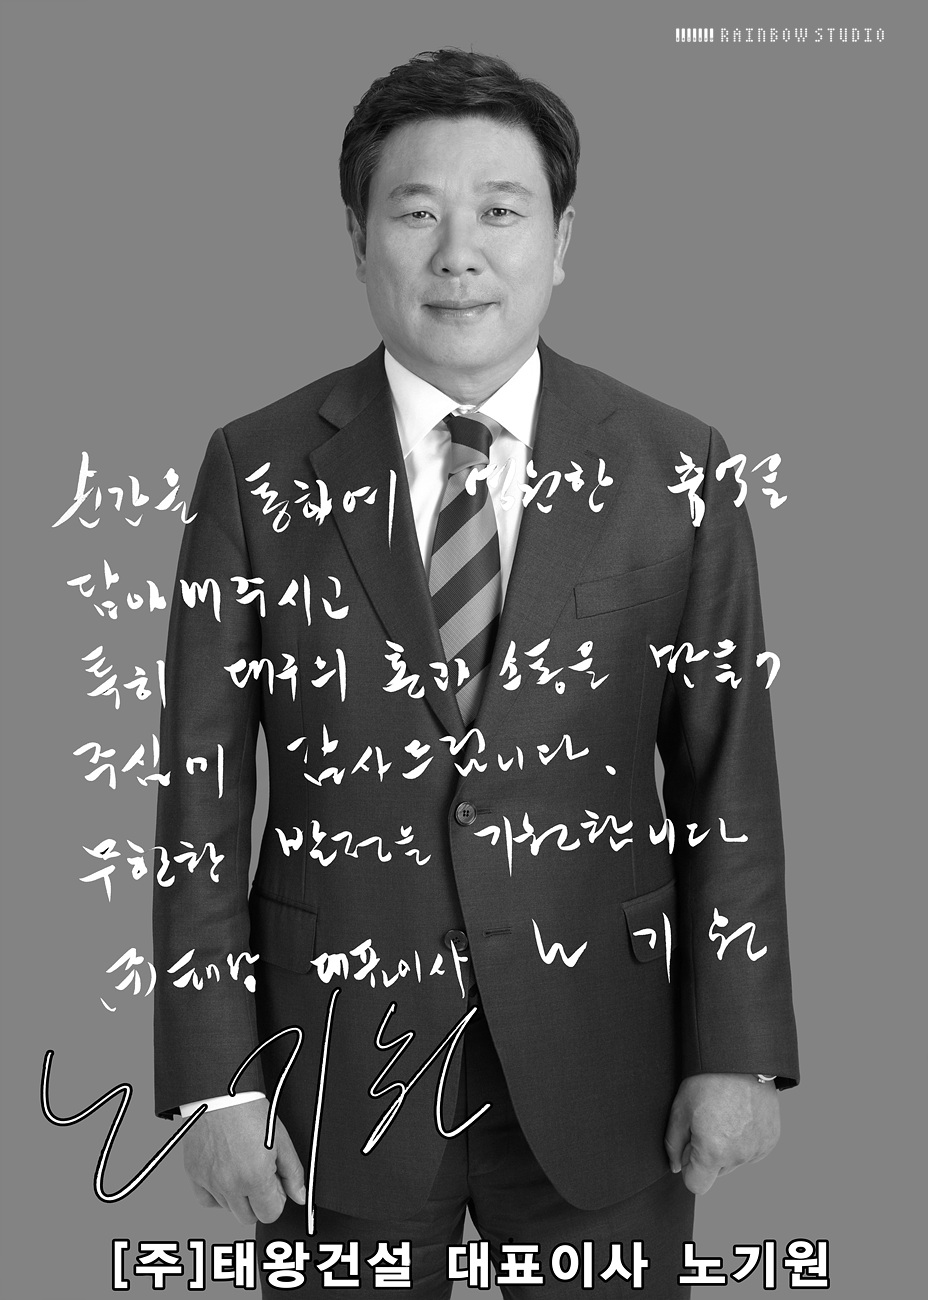 RAINBOW STUDIO
순간을 통하여 영원한 추억을
담아내주시고
특히 대구의 혼과 소통을 만들
주심에 감사드립니다.
무한한 발전을 기원합니다
(주)태왕 대표이사 노 기 원
노기원
[주]태왕건설 대표이사 노기원